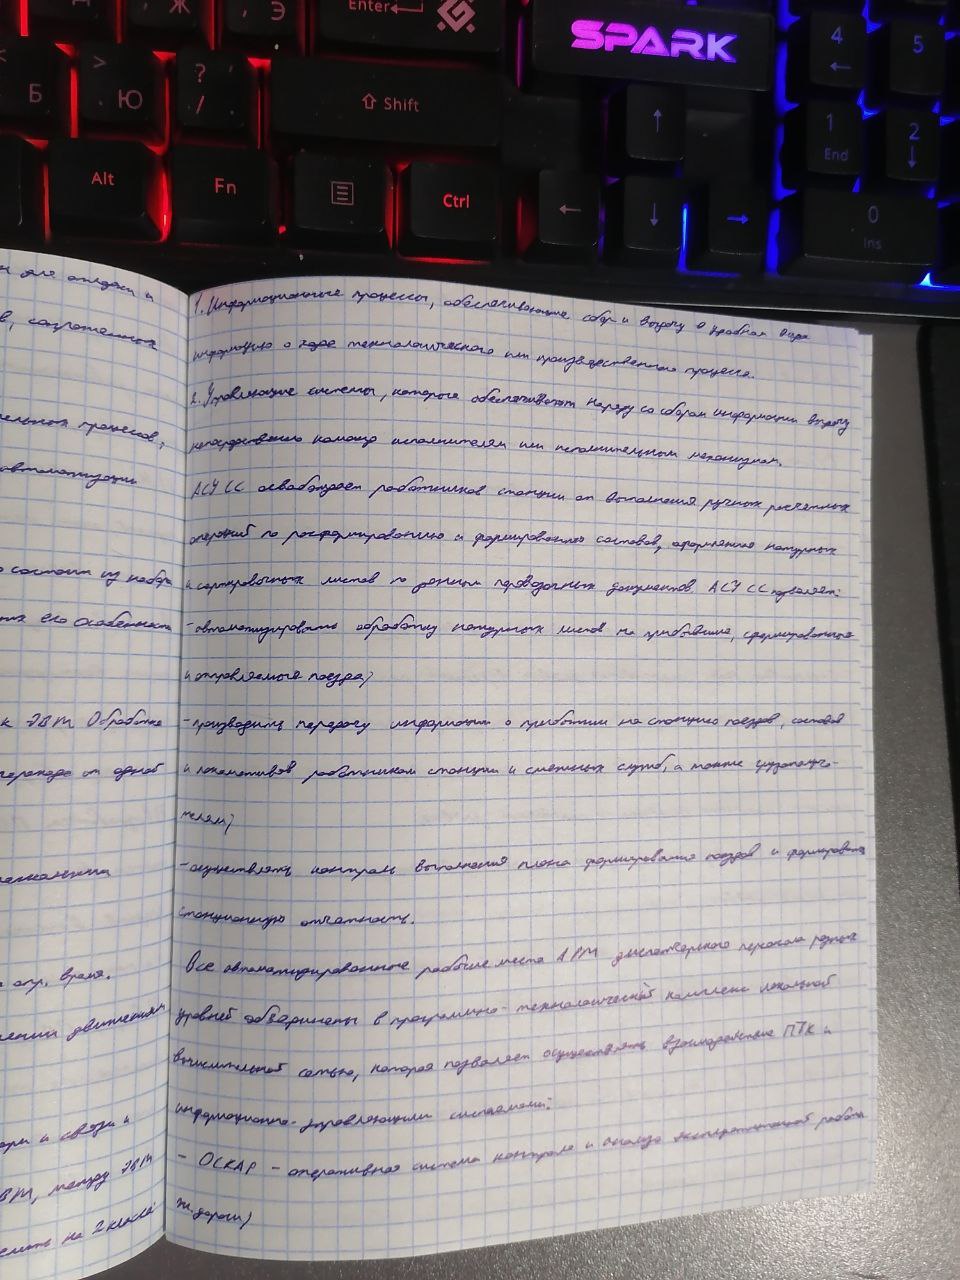 Ж
Э
Enter
SPARK
4
5
Б
>
. Ю
? ,
/ .
Shift
1
End
2
Alt
Fn
Ctrl
0
Ins
для отдачи и
в, сопряженных
тельных процессов,
автоматизации
состоит из набора
его особенности
к ЭВМ Обработка
перехода от одной
опр. время.
движением
и связи и
ЭВМ, между ЭВМ
на 2 класса:
1. Информационные процессы, обеспечивающие сбор и выдачу в удобном виде
информацию о ходе технологического или производственного процесса.
2. Управляющие системы, которые обеспечивают наряду со сбором информации выдачу
непосредственно команд исполнителям или исполнительным механизмам.
АСУ СС освобождает работников станции от выполнения ручных расчетных
операций по расформированию и формированию составов, оформлению натурных
и сортировочных листов по данным перевозочных документов. АСУ СС позволяет:
- автоматизировать обработку натурных листов на прибывшие, сформированные
и отправляемые поезда;
- производить передачу информации о прибытии на станцию поездов, составов
и локомотивов работникам станции и смежных служб, а также грузополуча-
телям;
- осуществлять контроль выполнения плана формирования поездов и формировать
станционную отчетность.
Все автоматизированные рабочие места АРМ диспетчерского персонала разных
уровней объединены в программно-технологический комплекс локальной
вычислительной сетью, которая позволяет осуществлять взаимодействие ПТК и
информационно-управляющими системами:
- ОСКАР - оперативная система контроля и анализа эксплуатационной работы
ж. дороги;